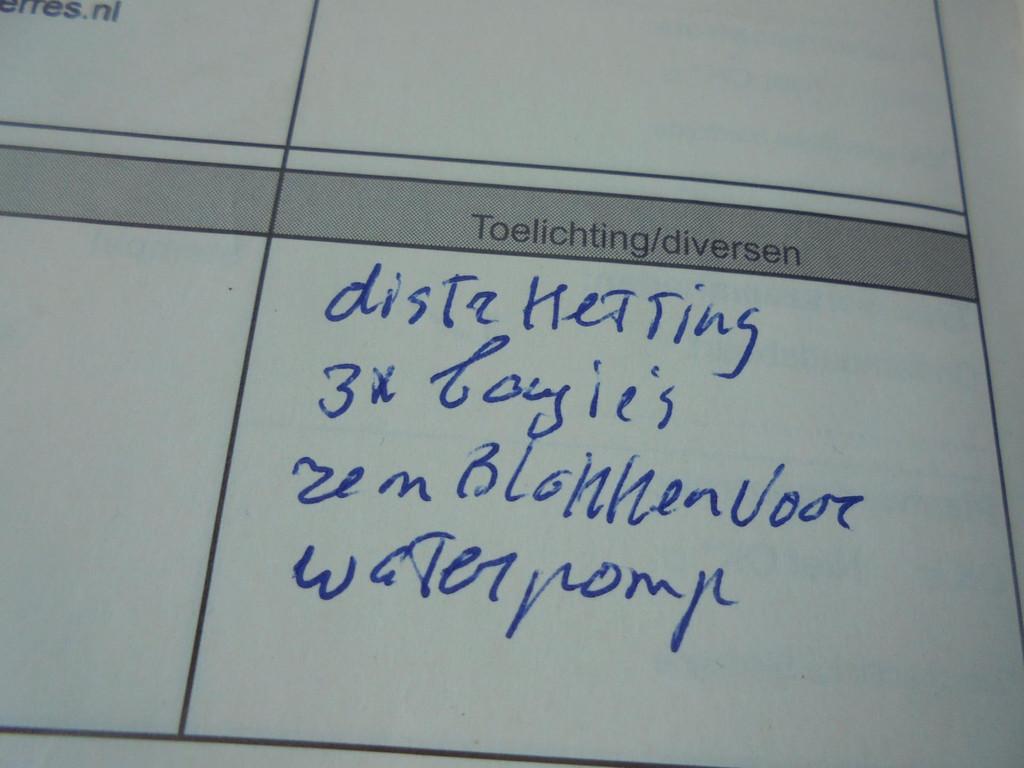 erres.nl
Toelichting/diversen
distr Ketting
3x bougies
remBlokken Voor
waterpomp